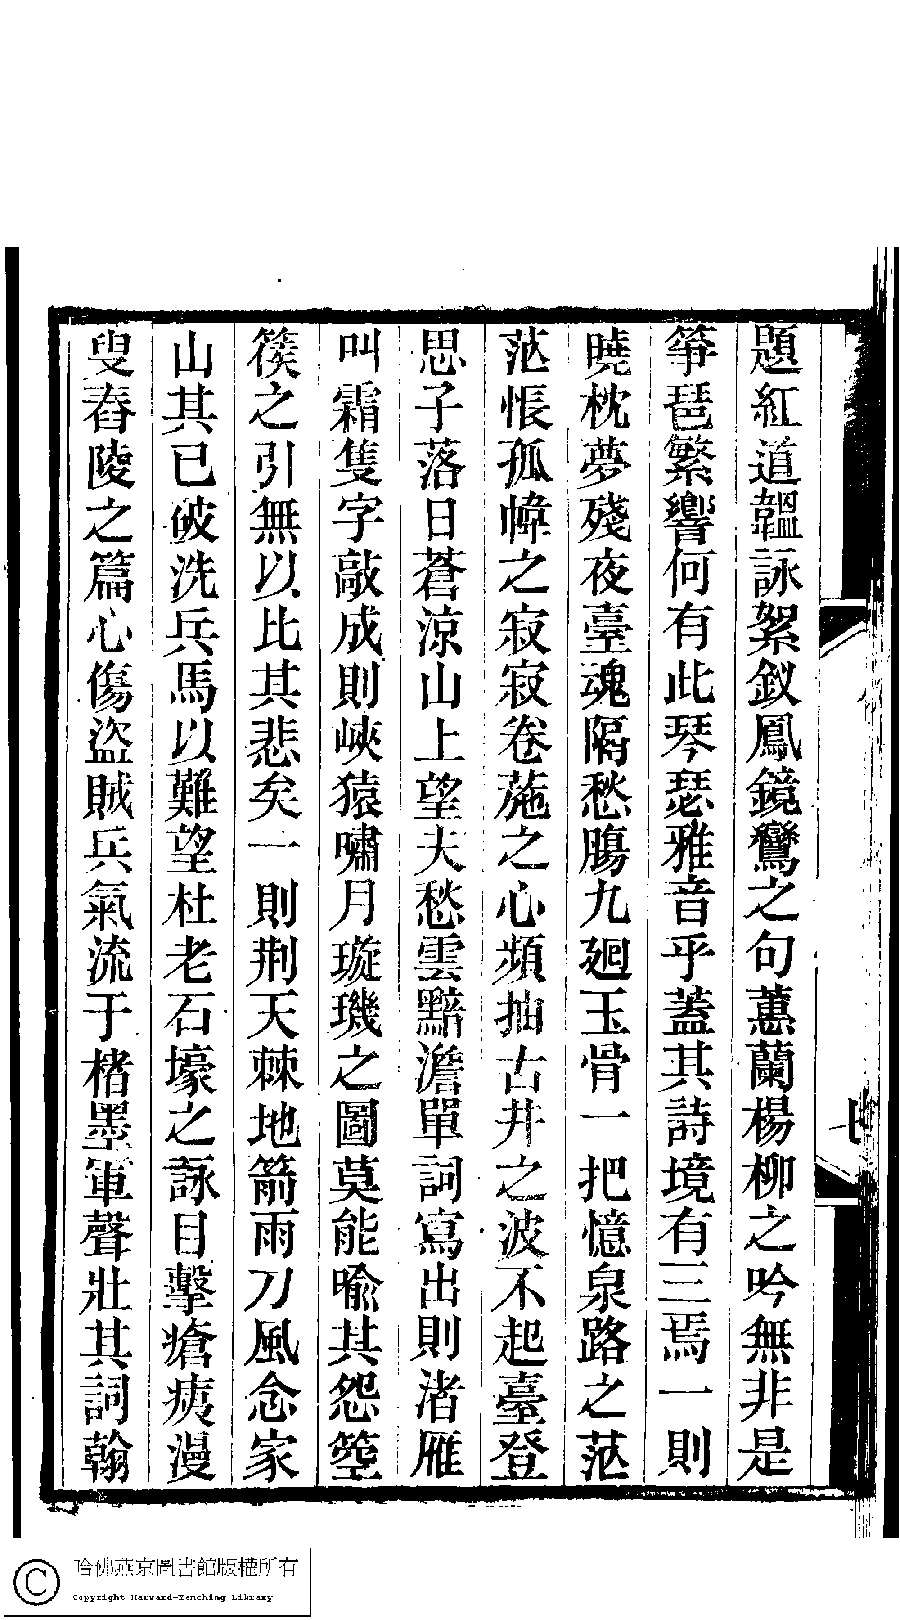 題紅道韞詠絮釵鳳鏡鸞之句蕙蘭楊柳之吟無非是
箏琶繁響何有此琴瑟雅音乎蓋其詩境有三焉一則
曉枕夢殘夜臺魂隔愁腸九廻玉骨一把憶泉路之茫
茫悵孤幃之寂寂卷葹之心頻抽古井之波不起臺登
思子落日蒼涼山上望夫愁雲黯澹單詞寫出則渚雁
叫霜隻字敲成則峽猿嘯月璇璣之圖莫能喻其怨箜
篌之引無以比其悲矣一則荆天棘地箭雨刀風念家
山其已破洗兵馬以難望杜老石壕之詠目擊瘡痍漫
叟舂陵之篇心傷盜賊兵氣流于楮墨軍聲壯其詞翰
七
哈佛燕京圖書館版權所有
Copyright Harvard-Yenching Library